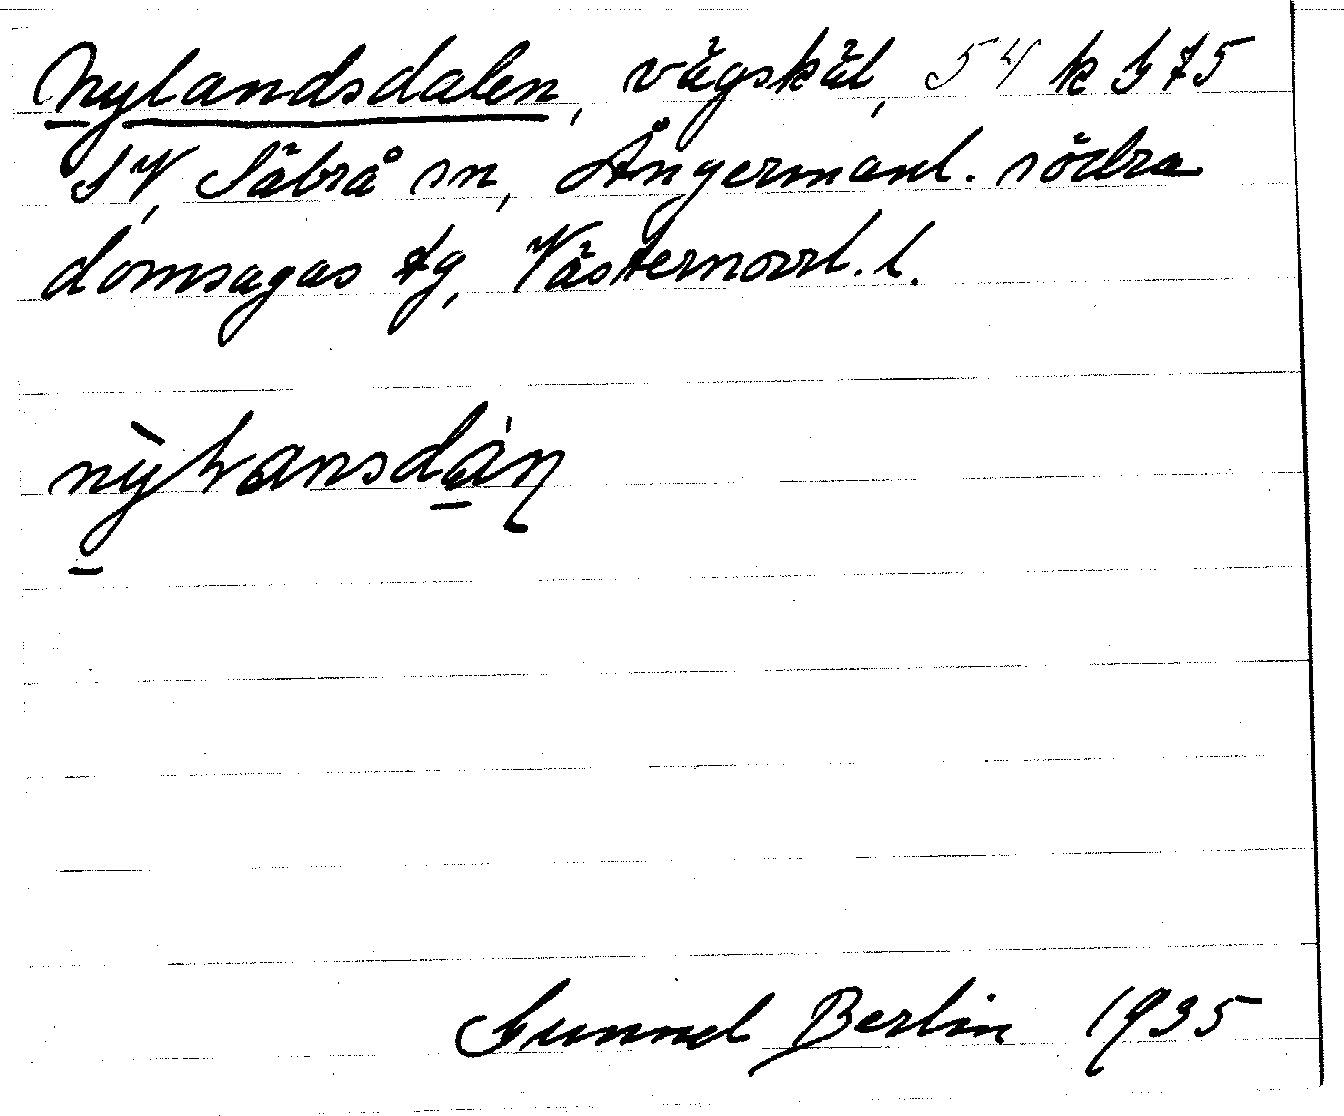 Nylandsdalen, vägskäl, 54 k b 75
SV, Säbrå sn, Ångermanl. södra
domsagas tg, Västernorrl. l.
nỳlansdán
Gunnel Berlin 1935